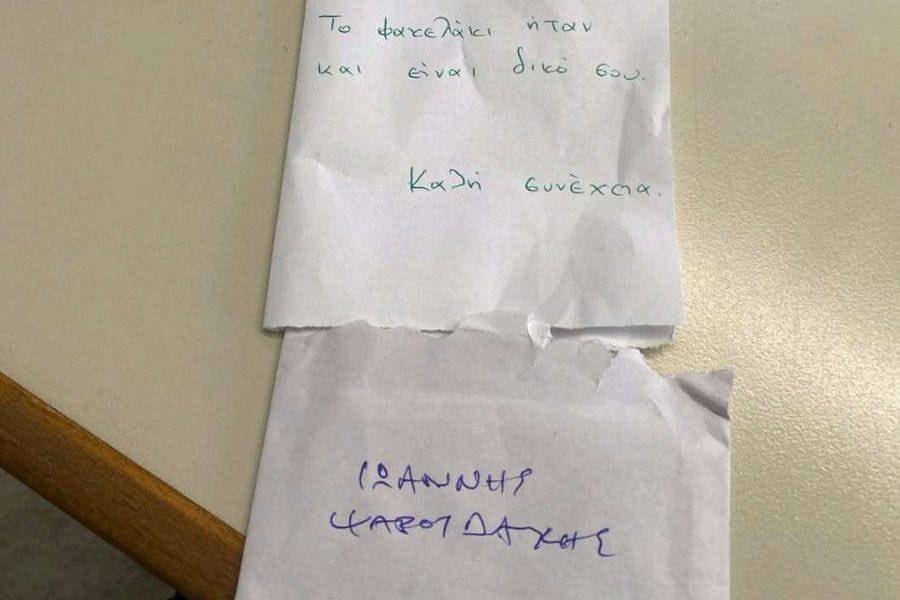 Το φακελάκι ήταν
και είναι δικό σου.
Καλή συνέχεια.
ΙΩΑΝΝΗΣ